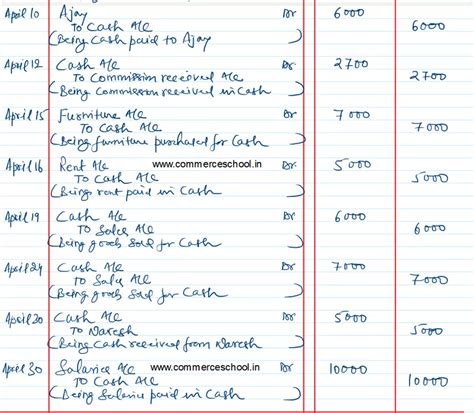 April 10 Ajay Dr 6000
To Cash A/c 6000
(Being Cash paid to Ajay)
April 12 Cash A/c Dr. 2700
To Commission received A/c 2700
(Being Commission received in Cash)
April 15 Furniture A/c Dr. 7000
To Cash A/c 7000
(Being furniture purchased for Cash)
April 16 Rent A/c www.commerceschool.in Dr. 5000
To Cash A/c 5000
(Being rent paid in Cash)
April 19 Cash A/c Dr 6000
To Sales A/c 6000
(Being goods Sold for Cash)
April 24 Cash A/c Dr 7000
To Sales A/c 7000
(Being goods Sold for Cash)
April 30 Cash A/c Dr 5000
To Naresh 5000
(Being Cash received from Naresh)
April 30 Salaries A/c www.commerceschool.in Dr 10000
To Cash A/c 10000
(Being Salarie paid in Cash)